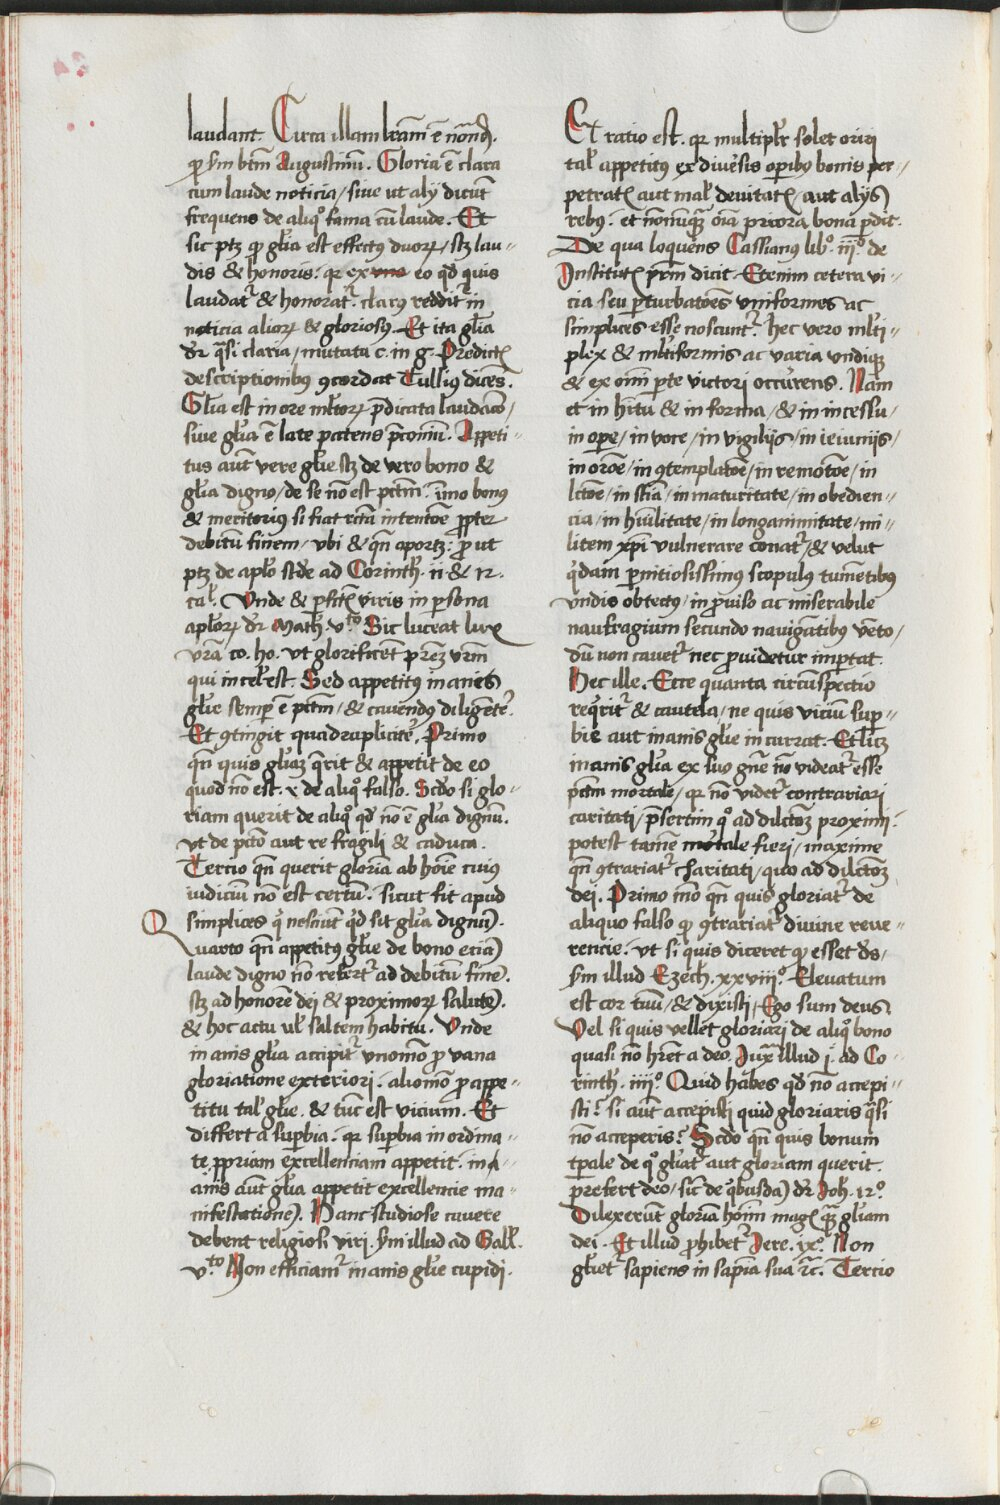 laudant. Circa illam lr̄am ē nōnd.
ꝙ scd'm btm̄ Augustinū. Gloria ē clara
cum laude noticia / siue ut alij dicūt
frequens de aliqͦ fama cū laude. Et
sic ptꝫ ꝙ gl̄ia est effectꝰ duoꝝ / sꝫ lau-
dis & honoris. qꝛ ex vno eo qd̄ quis
laudat̄ & honorat̄. clarꝰ reddit̄ in
noticia alioꝝ & gloriosꝰ. Et ita gl̄ia
dr̄ q̄si claria / mutata c. in g. Predict
descriptionibꝰ ꝯcordat Tulliꝰ dicēs.
Gl̄ia est in ore ml̄toꝝ p̄dicata laudacō /
siue gl̄ia ē late patens p̄coniū. Appeti-
tus aut̄ vere gl̄ie sꝫ de vero bono &
gl̄ia digno / de se nō est pctm̄. imo bonꝰ
& meritoriꝰ si fiat rc̄ta intentōe ꝓpter
debitū finem / vbi & qn̄ oportꝫ. ꝓ ut
ptꝫ de aplo scd̄e ad Corinth̄. ii & 12.
cal̄. Vnde & ꝑfect viris in ꝑsona
aploꝝ dr̄ Math̄. v.to Sic luceat lux
vr̄a co. ho. vt glorificēt pr̄eꝫ vr̄m
qui in cel̄ est. Sed appetitꝰ inanis
gl̄ie semꝑ ē pctm̄ / & cauendꝰ diligēter.
Et ꝯtingit quadrupliciter. Primo
qn̄ quis gl̄iaꝫ q̄rit & appetit de eo
quod nō est. & de aliqͦ falso. Scd̄o si glo-
riam querit de aliqͦ qd̄ nō ē gl̄ia dignū.
vt de pctō aut re fragili & caduca.
Tercio qn̄ querit gloriā ab hoīe cuiꝰ
iudiciū nō est certū. sicut fit apud
simplices q̄ nesciūt qd̄ sit gl̄ia dignū.
Quarto qn̄ appetitꝰ gl̄ie de bono eciā
laude digno nō refert̄ ad debitū finē.
sꝫ ad honorē dei & proximoꝝ salutē.
& hoc actu ul̄ saltem habitu. Vnde
inanis gl̄ia accipit̄ vnomō ꝓ vana
gloriatione exteriori. aliomō ꝓ appe-
titu tal̄ gl̄ie. & tūc est vicium. Et
differt a suꝑbia. qꝛ suꝑbia inordina-
te ꝓpriam excellenciam appetit. in
anis aūt gl̄ia appetit excellencie ma-
nifestationē. Hanc studiose cauere
debent religiosi viri. scd'm illud ad Gall̄.
v.to Non efficiamr̄ inanis gl̄ie cupidi.
Et ratio est. qꝛ multiplr̄ solet oriri
tal̄ appetitꝰ ex diuersis oꝑibꝰ bonis per-
petrat aut mal̄ deuitat / aut alijs
rebꝰ. et nōnūqꝫ oīa priora bona ꝑdit.
De qua loquens Cassianꝰ libͦ. iijͦ. de
Institut pr̄m dicit. Etenim cetera vi-
cia seu ꝑturbatōes vniformes ac
simplices esse noscunt̄. hec vero ml̄ti-
plex & ml̄tiformis ac varia vndiqꝫ
& ex omī ꝑte victori occurens. Nam
et in hītu & in forma / & in incessu /
in oꝑe / in voce / in vigilijs / in ieiunijs /
in orōe / in ꝯtemplatōe / in remotōe / in
lc̄tōe / in sciā / in maturitate / in obedien-
cia / in hūilitate / in longanimitate / mi-
litem xp̄i vulnerare conat̄ / & velut
q̄dam ꝑnitiosissimꝰ scopulus tumētibꝰ
vndis obtectꝰ / in ꝓuiso ac miserabile
naufragium secundo nauigātibꝰ vēto /
dū non cauet̄ nec ꝓuidetur imꝑtat.
Hec ille. Ecce quanta circūspectio
req̄rit̄ & cautela / ne quis viciū suꝑ-
bie aut inanis gl̄ie incurrat. Et licꝫ
inanis gl̄ia ex suo gn̄e nō videat̄ esse
pctm̄ mortale / qꝛ nō videt̄ contrariari
caritati / p̄sertim qͦ ad dilctōꝫ proximi.
potest tamē mortale fieri / maxime
qn̄ ꝯtrariat̄ charitati / quo ad dilctōꝫ
dei. Primo imō qn̄ quis gloriat̄ de
aliquo falso ꝙ ꝯtrariat̄ diuine reue-
rencie. vt si quis diceret ꝙ esset ds̄
scd'm illud Ezech̄. xxviijͦ. Eleuatum
est cor tuū / & dixisti / Ego sum deus.
Vel si quis vellet gloriari de aliqͦ bono
quasi nō hr̄et a deo. Iuxͣ illud j. ad Co-
rinth̄. iiijͦ. Quid habes qd̄ nō accepi-
sti? si aūt accepisti quid gloriaris q̄si
nō acceperis? Scd̄o qn̄ quis bonum
tꝑale de qͦ gl̄iat̄ aut gloriam querit.
prefert deo / sic̄ de q̄busdā dr̄ Joh. 12ͦ.
Dilexerūt gloriā hoīm magꝭ qꝫ gl̄iam
dei. Et illud ꝓhibet̄ Jere. ixͦ. Non
gl̄iet̄ sapiens in sapīa sua ⁊c̄. Tercio